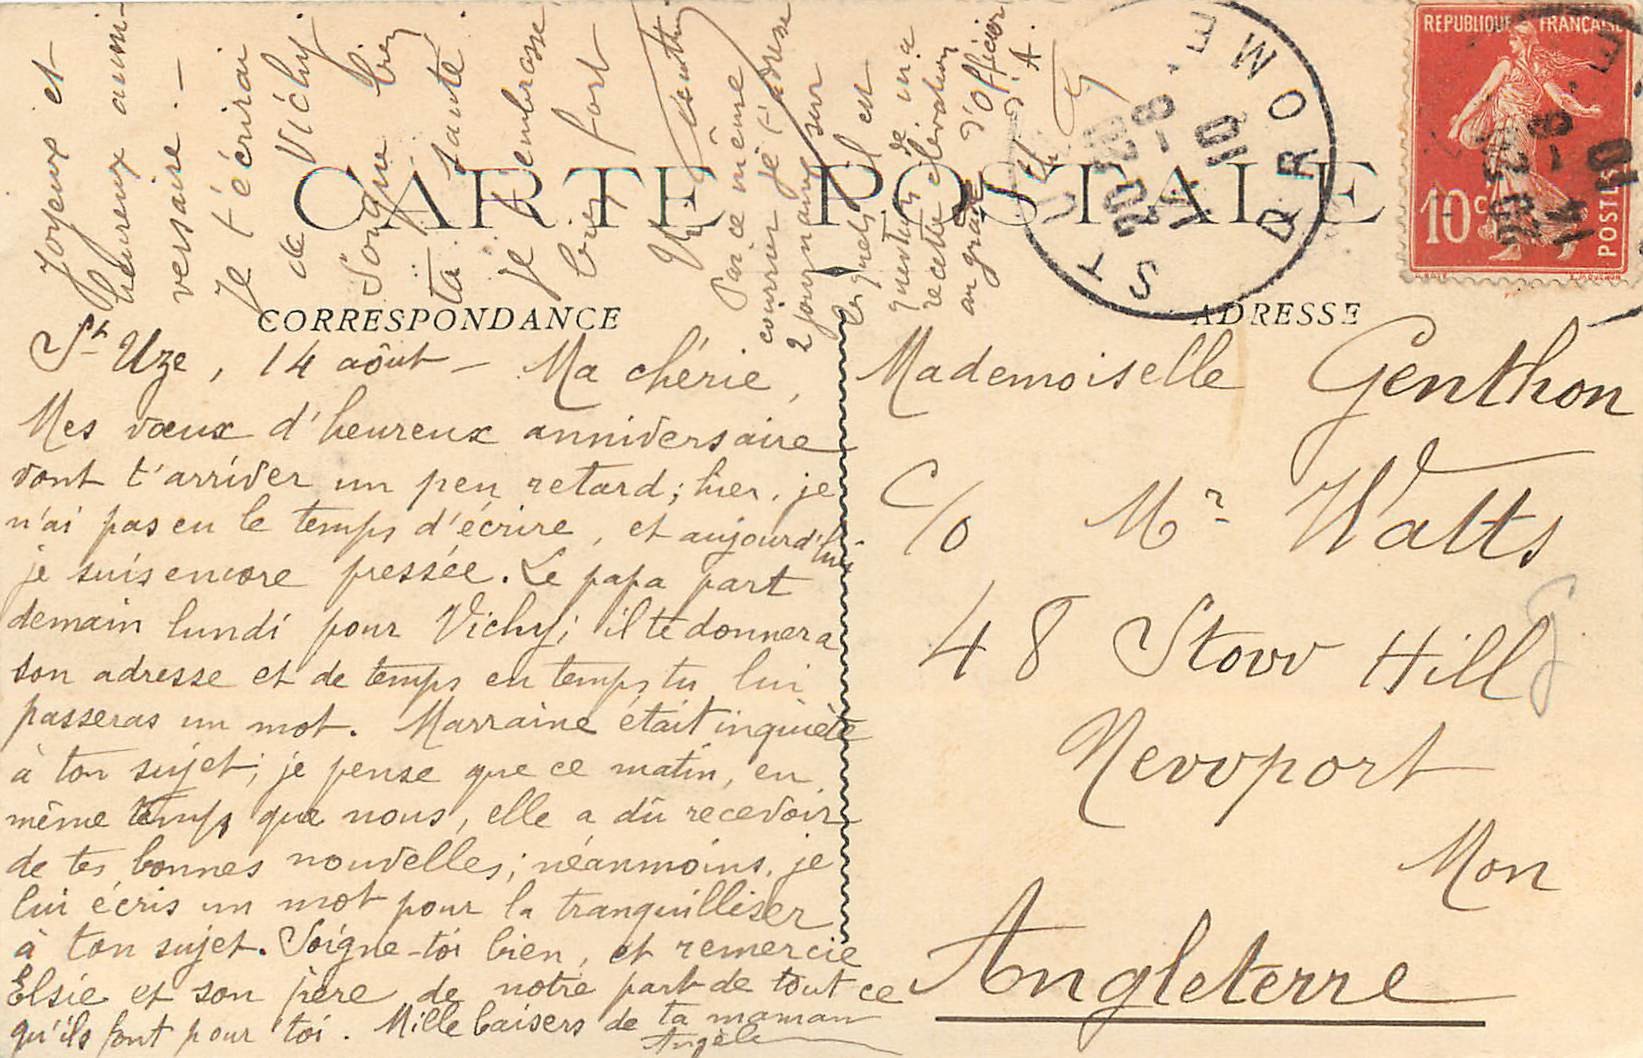 CARTE POSTALE
CORRESPONDANCE
ADRESSE
St Uze, 14 aôut - Ma chérie,
Mes vœux d'heureux anniversaire
vont t'arriver un peu retard; hier, je
n'ai pas eu le temps d'écrire, et aujourd'hui
je suis encore pressée. Le papa part
demain lundi pour Vichy; il te donnera
son adresse et de temps en temps tu lui
passeras un mot. Marraine était inquiète
à ton sujet; je pense que ce matin, en
même temps que nous, elle a dû recevoir
de tes bonnes nouvelles; néanmoins, je
lui écris un mot pour la tranquilliser
à ton sujet. Soigne-toi bien, et remercie
Elsie et son père de notre part de tout ce
qu'ils font pour toi. Mille baisers de ta maman
Angèle
Joyeux et
heureux anni-
versaire. -
Je t'écrirai
de Vichy
Soigne bien
ta santé.
Je t'embrasse
bien fort
Par ce même
courrier je t'adresse
2 journaux sur
lesquels il est
question de ma
récente élévation
au grade d'Officier
d'A.
Mademoiselle Genthon
C/o Mr Watts
48 Stow Hill
Newport
Mon
Angleterre
REPUBLIQUE FRANÇAISE
10c
POSTES
ST UZE
DROME
20 23
14 -8
10